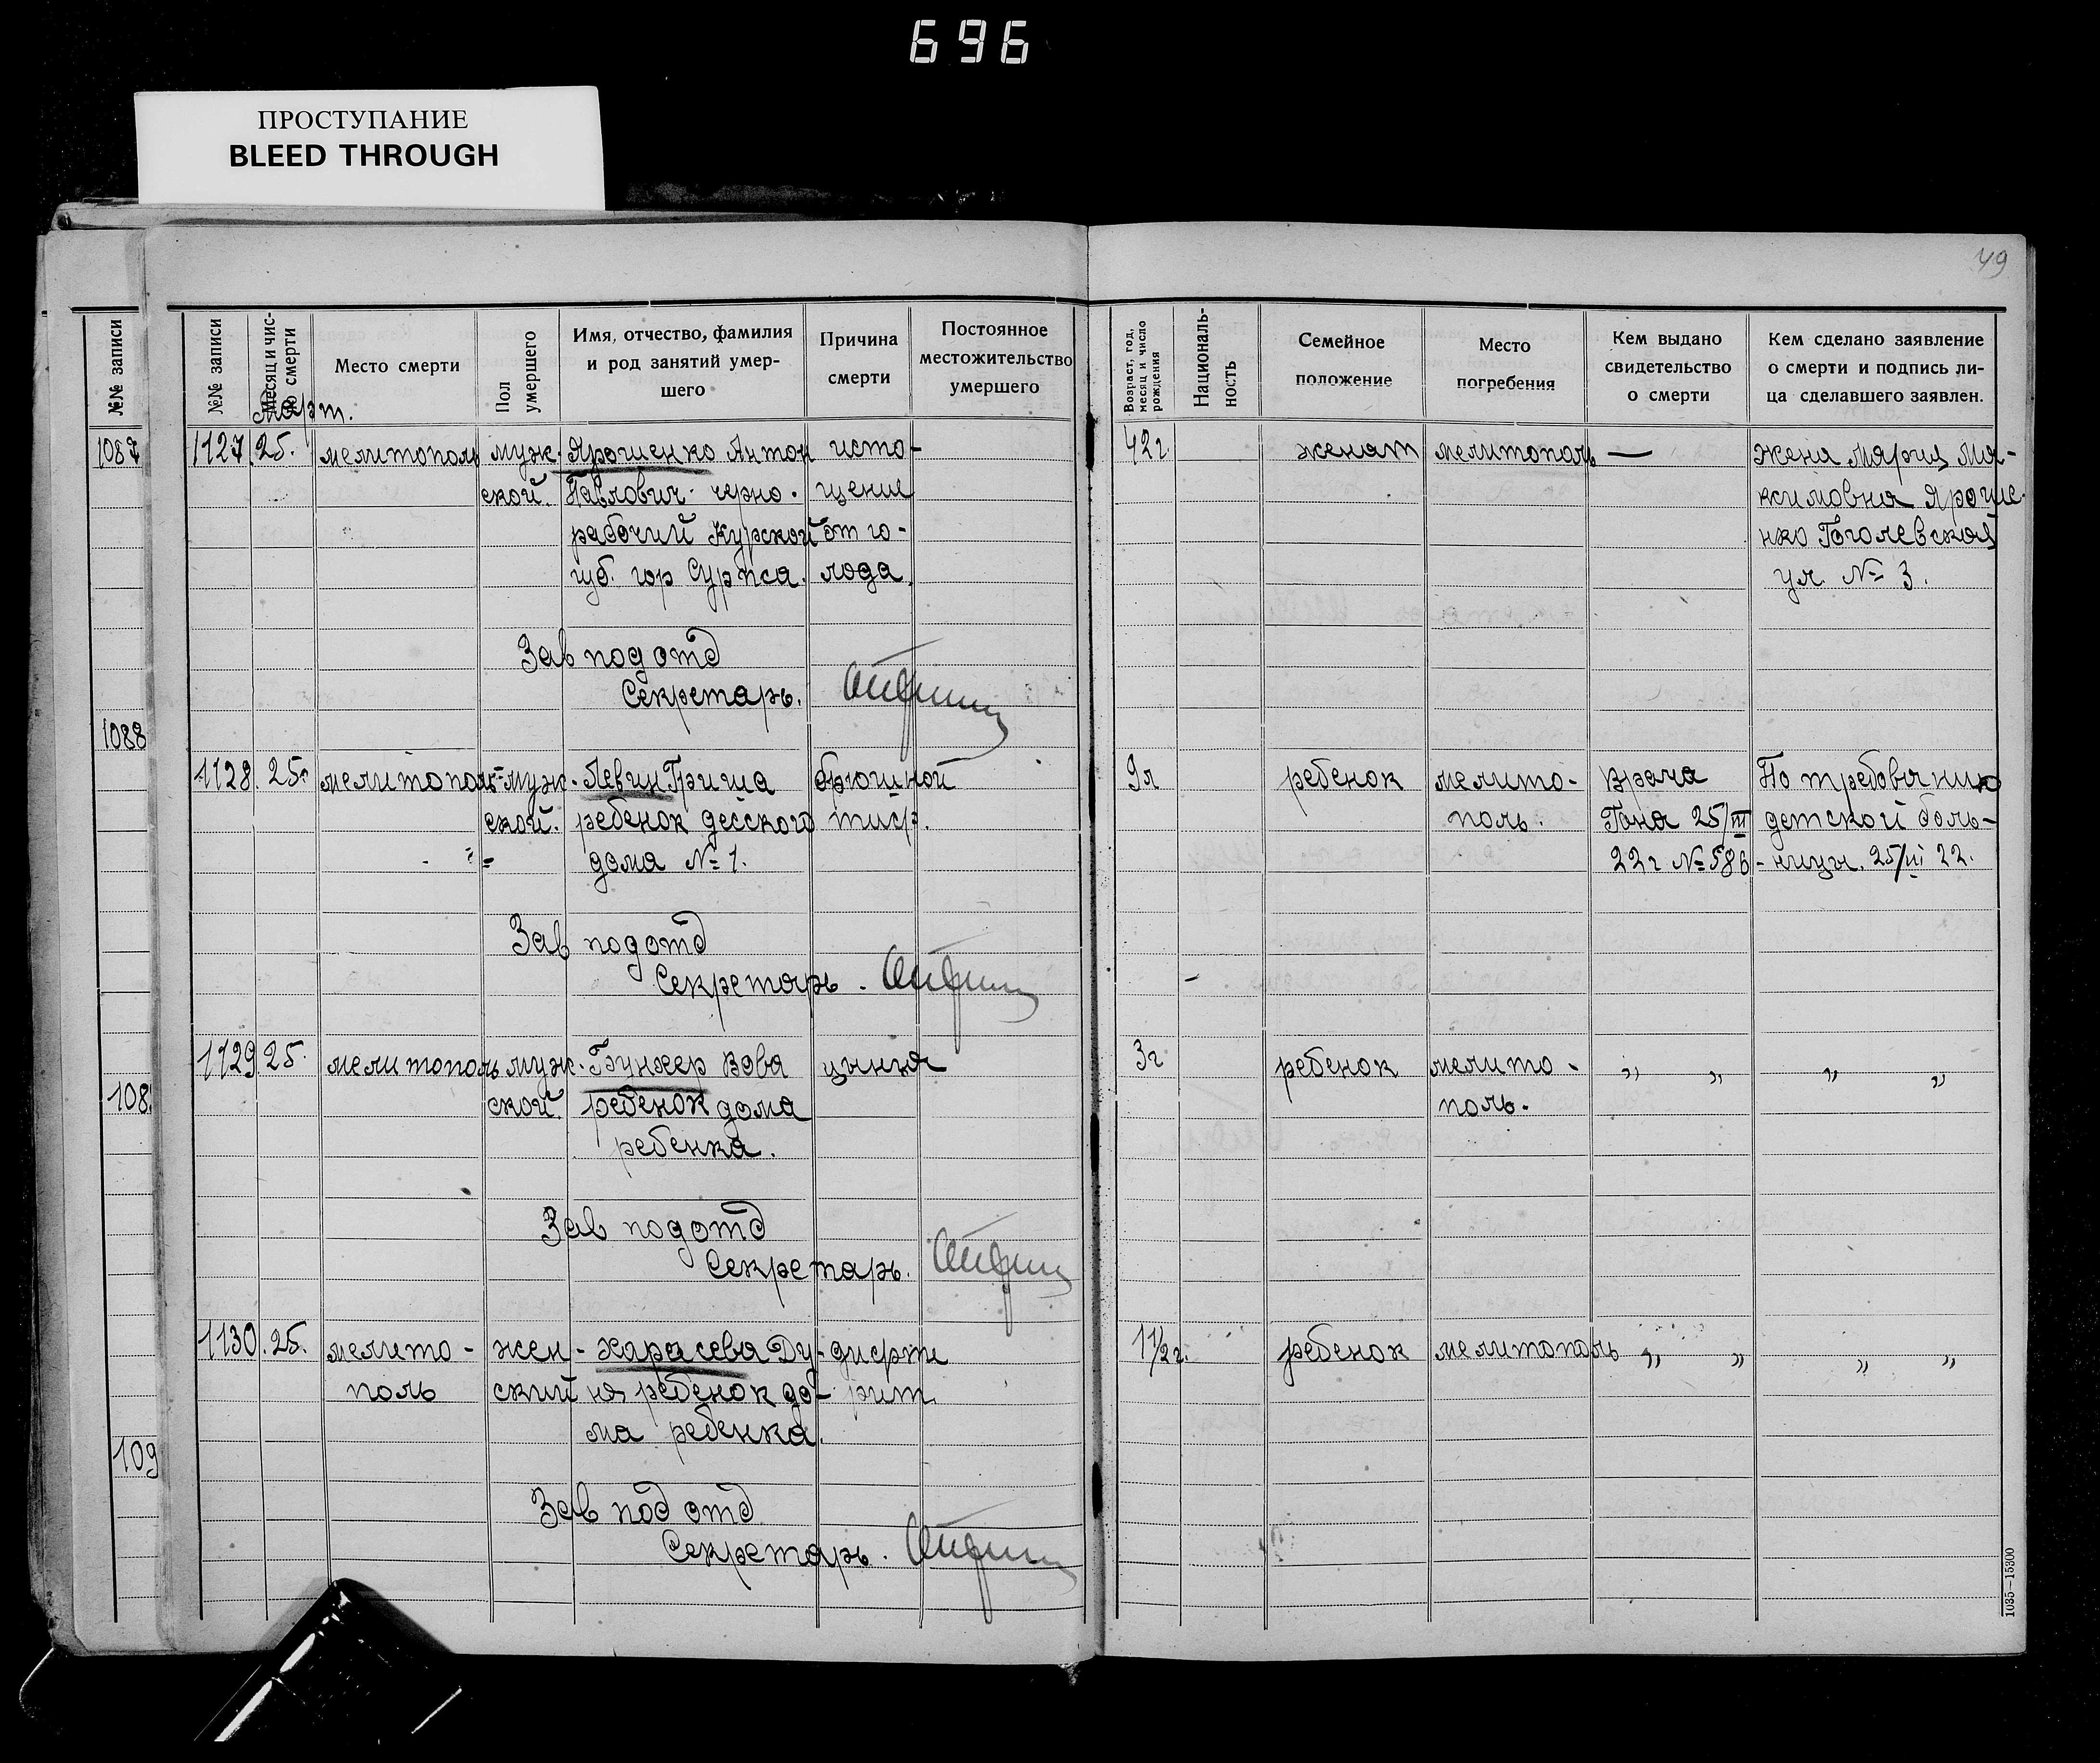 696
ПРОСТУПАНИЕ
BLEED THROUGH
49
№№ записи
№№ записи
Месяц и чис-
ло смерти
Место смерти
Пол
умершего
Имя, отчество, фамилия
и род занятий умер-
шего
Причина
смерти
Постоянное
местожительство
умершего
Возраст, год,
месяц и число
рождения
Националь-
ность
Семейное
положение
Место
погребения
Кем выдано
свидетельство
о смерти
Кем сделано заявление
о смерти и подпись ли-
ца сделавшего заявлен.
Март.
1087
1127. 25. мелитополь муж. Ярошенко Антон исто- 42г женат мелитополь — жена Мария Ма-
ской. Павлович черно. щение ксимовна Яроше-
рабочий Курской от го- нко Гоголевская
губ. гор лода. ул. № 3.
Зав подотд
Секретарь.
1088
1128. 25. мелитополь муж. Левин Гриша брюшной 9л ребенок мелито- врача По требованию
ской. ребенок дома № 1. тиф. поль. 25/III детской боль-
22г № 586 - ницы. 25/III 22.
Зав подотд
Секретарь.
1129. 25. мелитополь муж. Бункер Вова цынга 3г ребенок мелито- „ „ „ „
108
ской. ребенок дома поль.
ребенка.
Зав подотд
Секретарь.
1130. 25. мелито- жен- Карасева Ду- дифте 1 1/2 г. ребенок мелитополь „ „ „ „
поль ский ня ребенок до- рит
ма ребенка.
109
Зав подотд
Секретарь.
1035—15300